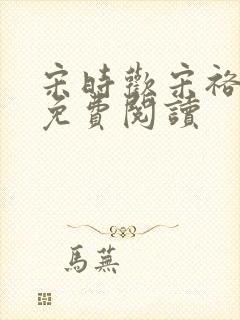 宋時歡宋裕
免費閱讀
馬蕪